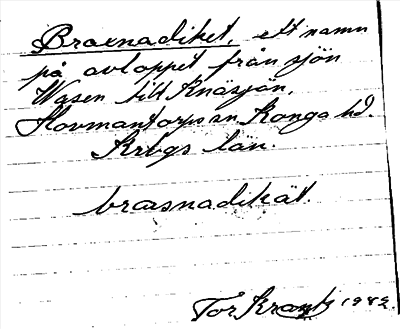 Braxnadiket, ett namn
på avloppet från sjön
Wasen till Knäsjön,
Hovmantorps sn Konga hd.
Krbgs län.
braxnadikät.
Tor Krantz 1982.